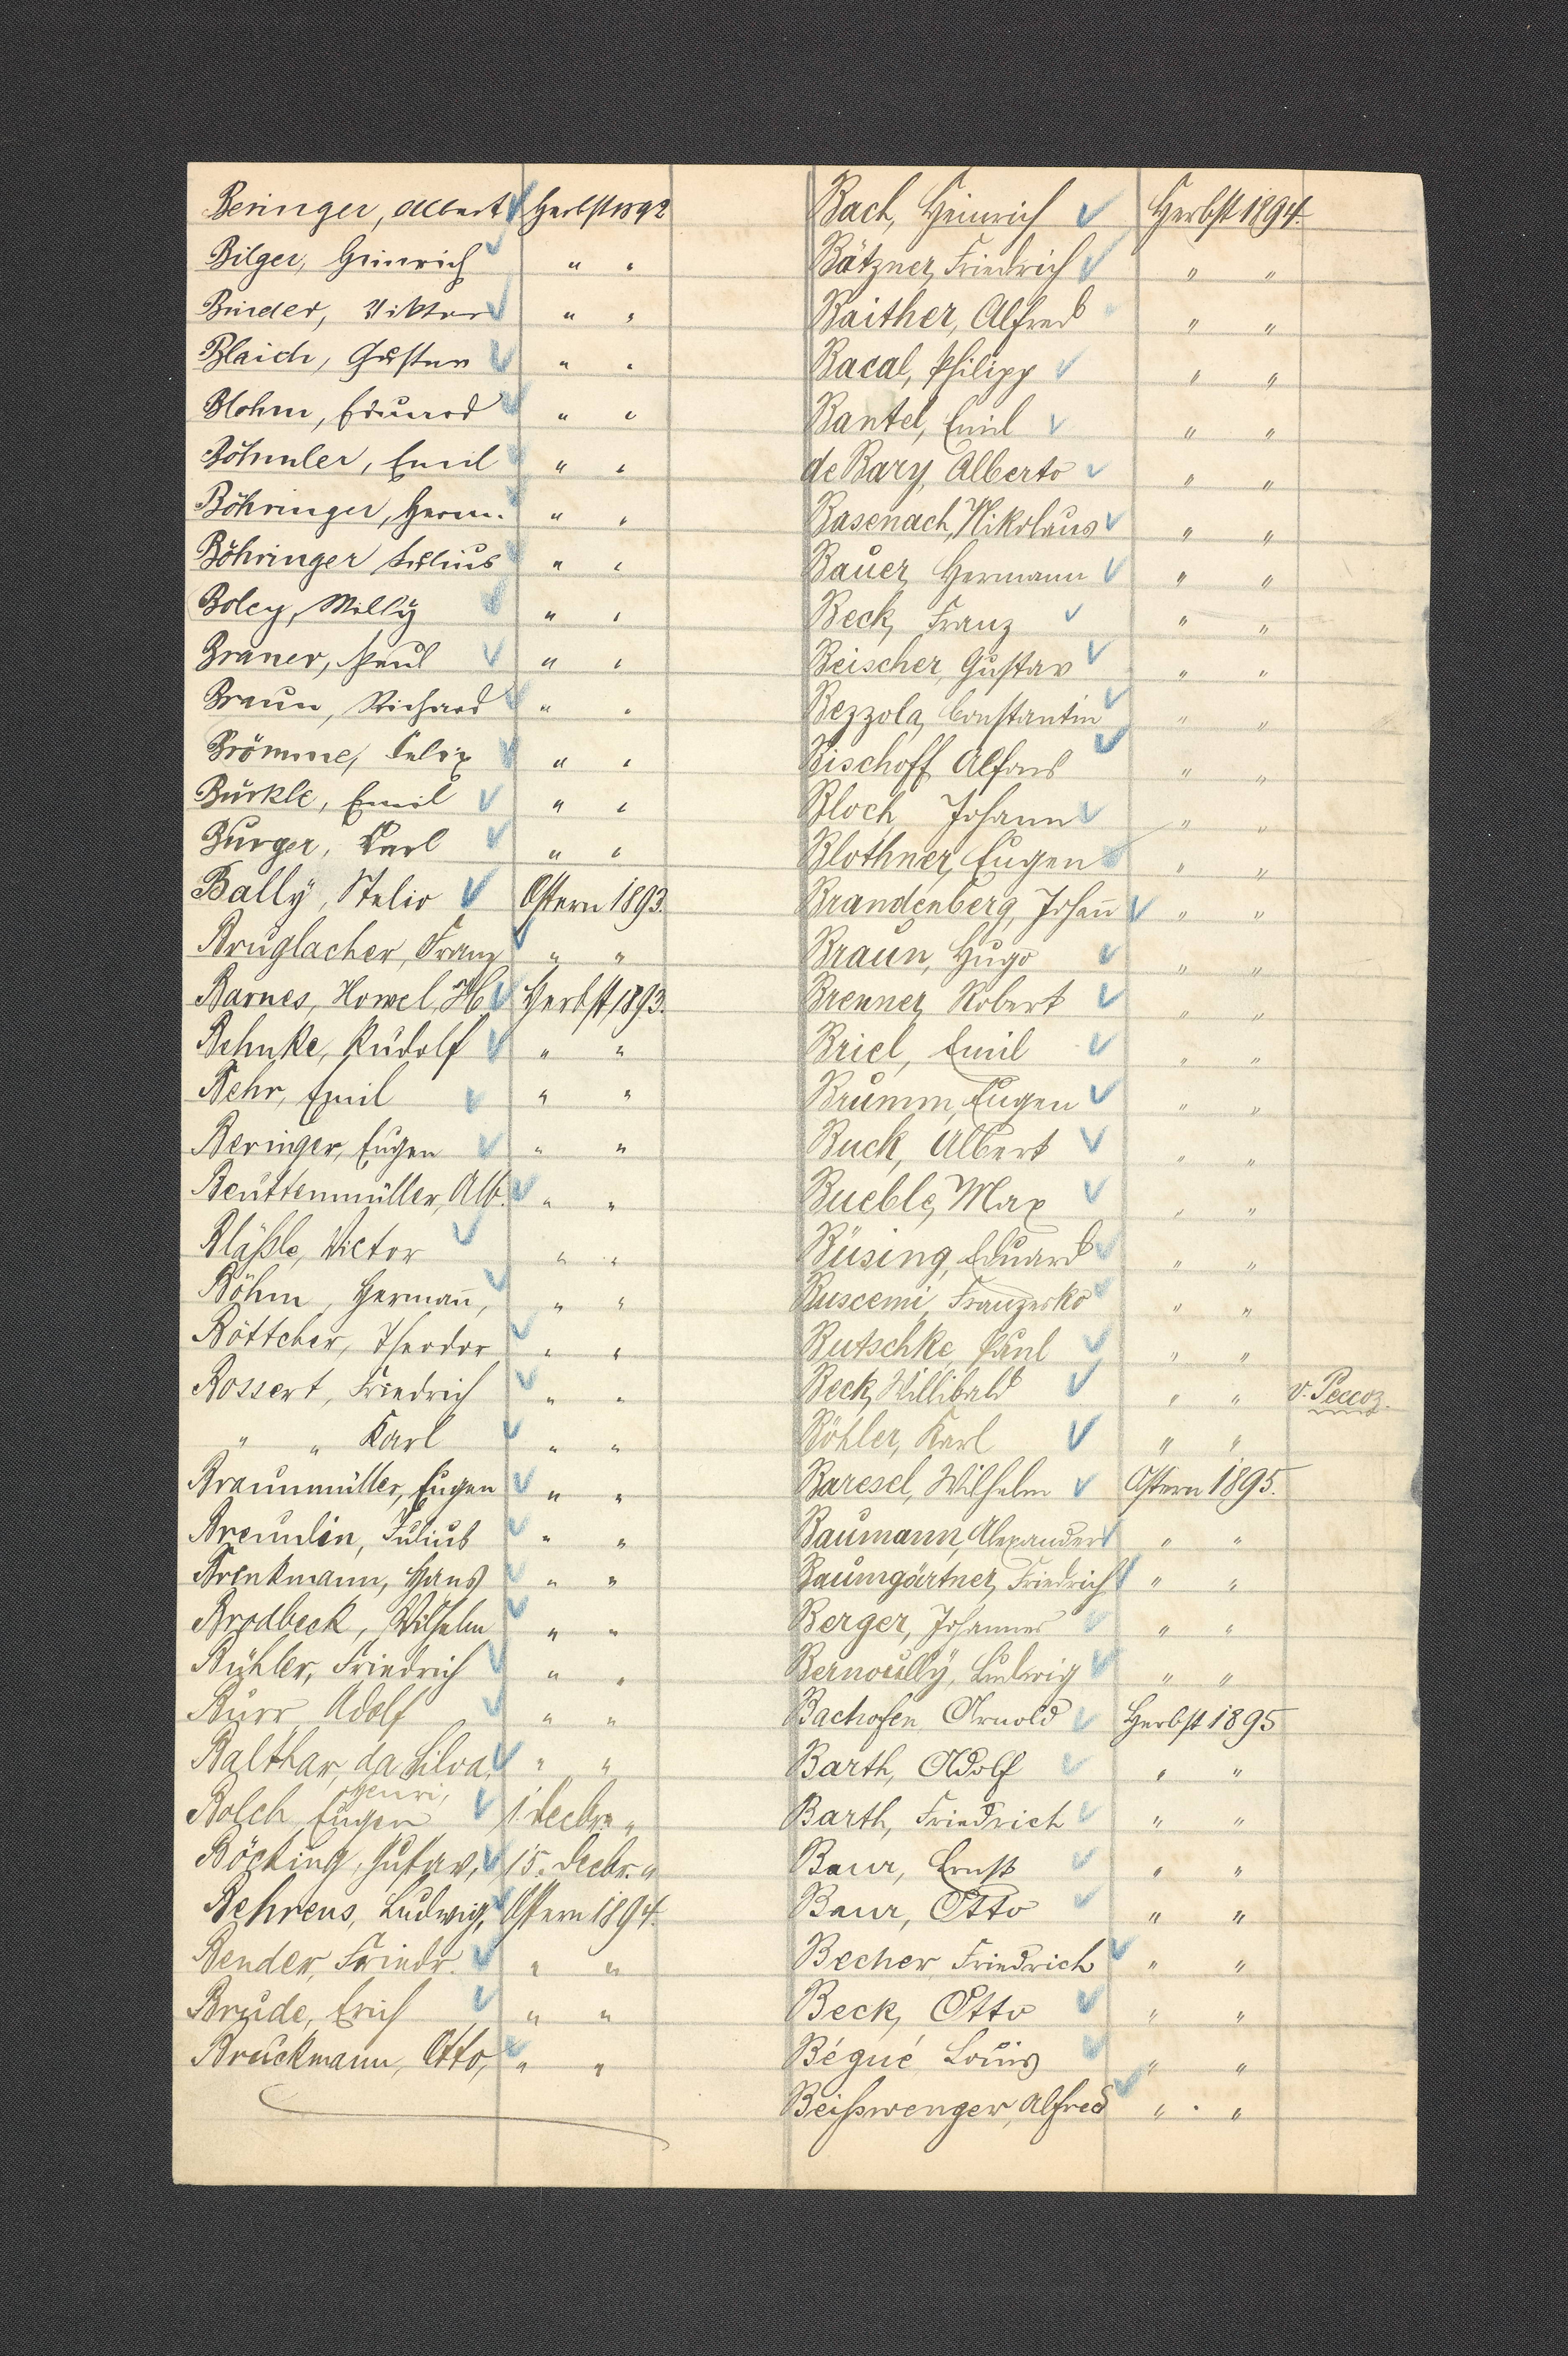 Beringer, Albert Herbst 1892
Bilger, Heinrich " "
Binder, Viktor " "
Blaich, Gustav " "
Blohm, Eduard " "
Böhmler, Emil " "
Böhringer, Herm. " "
Böhringer Julius " "
Boley, Willy " "
Braner, Paul " "
Braun, Richard " "
Brömme, Felix " "
Bürkle, Emil " "
Burger, Karl " "
Bally, Stelio Ostern 1893.
Bruglacher, Franz " "
Barnes, Howel, H. Herbst 1893.
Behnke, Rudolf " "
Behr, Emil " "
Beringer, Eugen " "
Beuttenmüller, Alb. " "
Bläßle, Victor " "
Böhm, Hermañ, " "
Böttcher, Theodor " "
Bossert, Friedrich " "
" " Karl " "
Braunmüller, Eugen " "
Breunlin, Julius " "
Brenkmann, Hans " "
Brodbeck, Wilhelm " "
Bühler, Friedrich " "
Burr, Adolf " "
Balthar, da Silva, " "
Henri,
Bolch, Eugen 1. Decbr. "
Böcking, Gustav, 15. Decbr. "
Behrens, Ludwig, Ostern 1894.
Bender, Friedr. " "
Brude, Erich " "
Bruckmann, Otto, " "
Bach, Heinrich Herbst 1894.
Bätzner, Friedrich " "
Baither, Alfred " "
Bacal, Philipp " "
Bantel, Emil " "
de Bary, Alberto " "
Basenach, Nikolaus " "
Bauer, Hermann " "
Beck, Franz " "
Beischer, Gustav " "
Bezzola, Constantin " "
Bischoff, Alfons " "
Bloch, Johann " "
Blothner, Eugen " "
Brandenberg, Johañ " "
Braun, Hugo " "
Brenner, Robert " "
Briel, Emil " "
Brumm, Eugen " "
Buck, Albert " "
Bueble, Max " "
Büsing, Eduard " "
Buscemi, Franzesko " "
Butschke, Paul " "
Beck, Willibald " " v. Peccoz.
Böhler, Karl " "
Baresel, Wilhelm Ostern 1895.
Baumann, Alexander " "
Baumgärtner, Friedrich " "
Berger, Johannes " "
Bernoully, Ludwig " "
Bachofen, Arnold Herbst 1895
Barth, Adolf " "
Barth, Friedrich " "
Baur, Ernst " "
Baur, Otto " "
Becher, Friedrich " "
Beck, Otto " "
Bégué, Louis " "
Beißwenger, Alfred " "